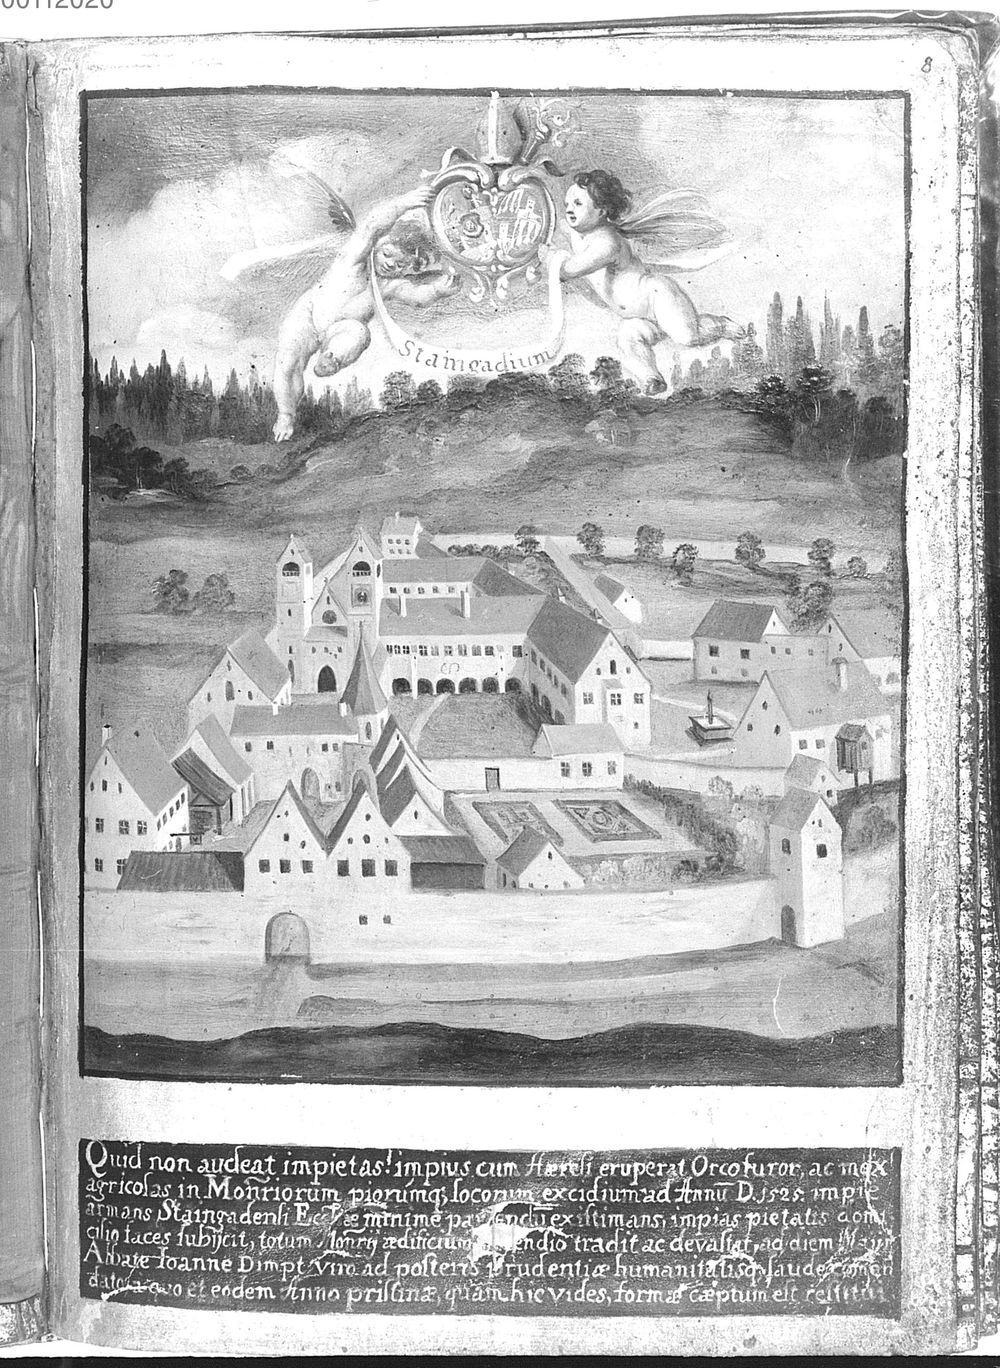 00112020
8
Staingadium
Quid non audeat impietas! impius cum Hæresi eruperat Orco furor, ac mox
agricolas in Monriorum piorumq; locorum excidium ad Annū D. 1525 impie
armans Staingadensi minime existimans, impias pietatis domi
cilio faces subijcit, totum Monrij ædificium tradit ac devastat, ad diem
Abbate Ioanne Dimpt viro ad posteris prudentiæ humanitatisq; laude
quo et eodem Anno pristinæ, quam hic vides, formæ cæptum est